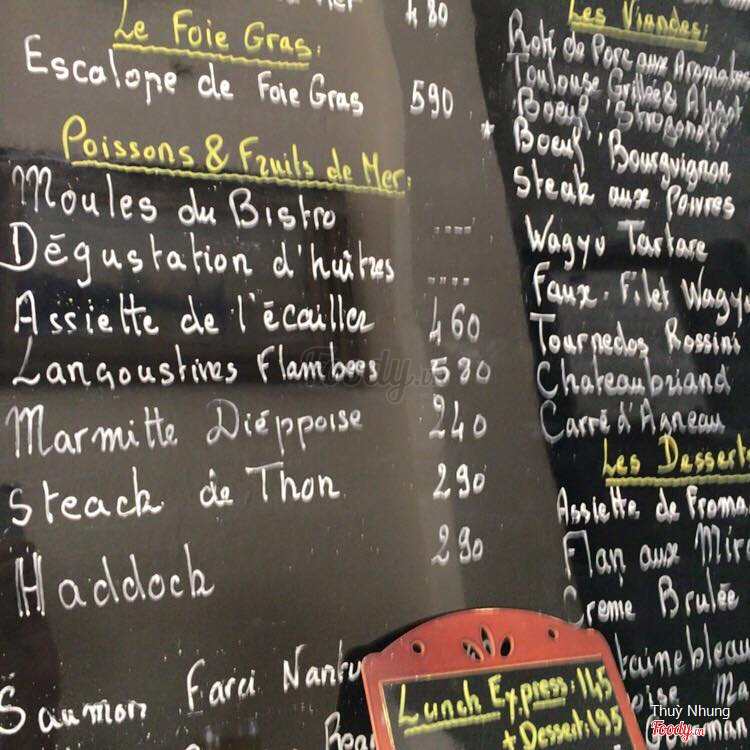 480
Le Foie Gras:
Escalope de Foie Gras 590
Poissons & Fruits de Mer:
Moules du Bistro ----
Dégustation d'huitres ----
Assiette de l'écailler 460
Langoustines Flambees 580
Marmitte Diéppoise 240
Steack de Thon 290
Haddock 290
Saumon Farci Nantu
Les Viandes:
Roti de Porc aux Aromates
Toulouse Grillée & Aligot
Boeuf Stroganoff
* Boeuf Bourguignon
Steak aux Poivres
Wagyu Tartare
Faux-Filet Wagy
Tournedos Rossini
Chateaubriand
Carré d'Agneau
Les Dessert
Assiette de Froma
Flan aux Mir
Creme Brulée
tainebleau
Lunch Express: 145
+ Dessert: 195
Thuỳ Nhung
Foody.vn
Foody.vn